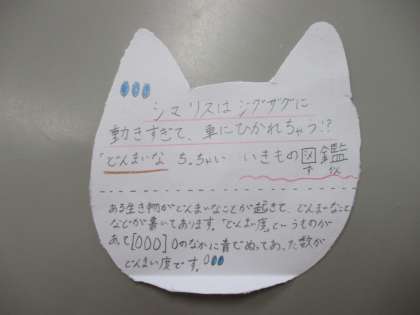 シマリスはジグザグに
動きすぎて、車にひかれちゃう!?
どんまいな ちっちゃい いきもの図鑑
ず かん
ある生き物がどんまいなことが起きて、どんまいなこと
などが書いてあります。「どんまい度」というものが
あて[000]0のなかに青でぬってあった数が
どんまい度です。000